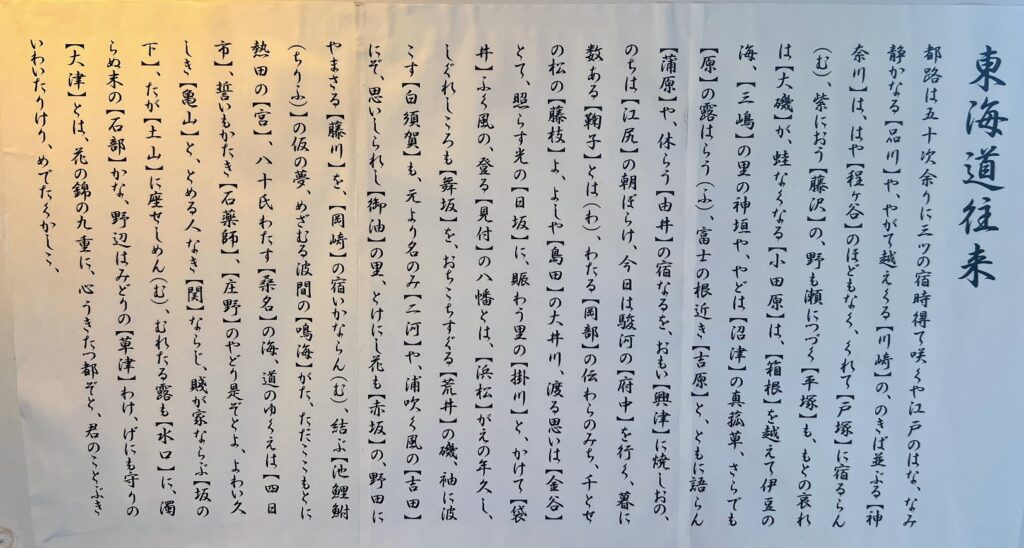 東海道往来
都路は五十次余りに三ツの宿時得て咲くや江戸のはな、なみ
静かなる【品川】や、やがて越えくる【川崎】の、のきば並ぶる【神
奈川】は、はや【程ヶ谷】のほどもなく、くれて【戸塚】に宿るらん
（む）、紫におう【藤沢】の、野も瀬につづく【平塚】も、もとの哀れ
は【大磯】が、蛙なくなる【小田原】は、【箱根】を越えて伊豆の
海、【三嶋】の里の神垣や、やどは【沼津】の真菰草、さらでも
【原】の露はらう（ふ）、富士の根近き【吉原】と、ともに語らん
【蒲原】や、休らう【由井】の宿なるを、おもい【興津】に焼しおの、
のちは【江尻】の朝ぼらけ、今日は駿河の【府中】を行く、暮に
数ある【鞠子】とは（わ）、わたる【岡部】の伝わらのみち、千とせ
の松の【藤枝】よ、よしや【島田】の大井川、渡る思いは【金谷】
とて、照らす光の【日坂】に、賑わう里の【掛川】と、かけて【袋
井】ふく風の、登る【見付】の八幡とは、【浜松】がえの年久し、
しぐれしころも【舞坂】を、おちこちすぐる【荒井】の磯、袖に波
こす【白須賀】も、元より名のみ【二河】や、浦吹く風の【吉田】
にぞ、思いしられし【御油】の里、とけにし花も【赤坂】の、野田に
やまさる【藤川】を、【岡崎】の宿いかならん（む）、結ぶ【池鯉鮒
（ちりふ）】の仮の夢、めざむる波間の【鳴海】がた、ただここもとに
熱田の【宮】、八十氏わたす【桑名】の海、道のゆくえは【四日
市】、誓いもかたき【石薬師】、【庄野】のやどり是ぞとよ、よわい久
しき【亀山】と、とめる人なき【関】ならじ、賤が家ならぶ【坂の
下】、たが【土山】に座せしめん（む）、むれたる露も【水口】に、濁
らぬ末の【石部】かな、野辺はみどりの【草津】わけ、げにも守りの
【大津】とは、花の錦の九重に、心うきたつ都ぞと、君のことぶき、
いわいたりけり、めでたくかしこ、